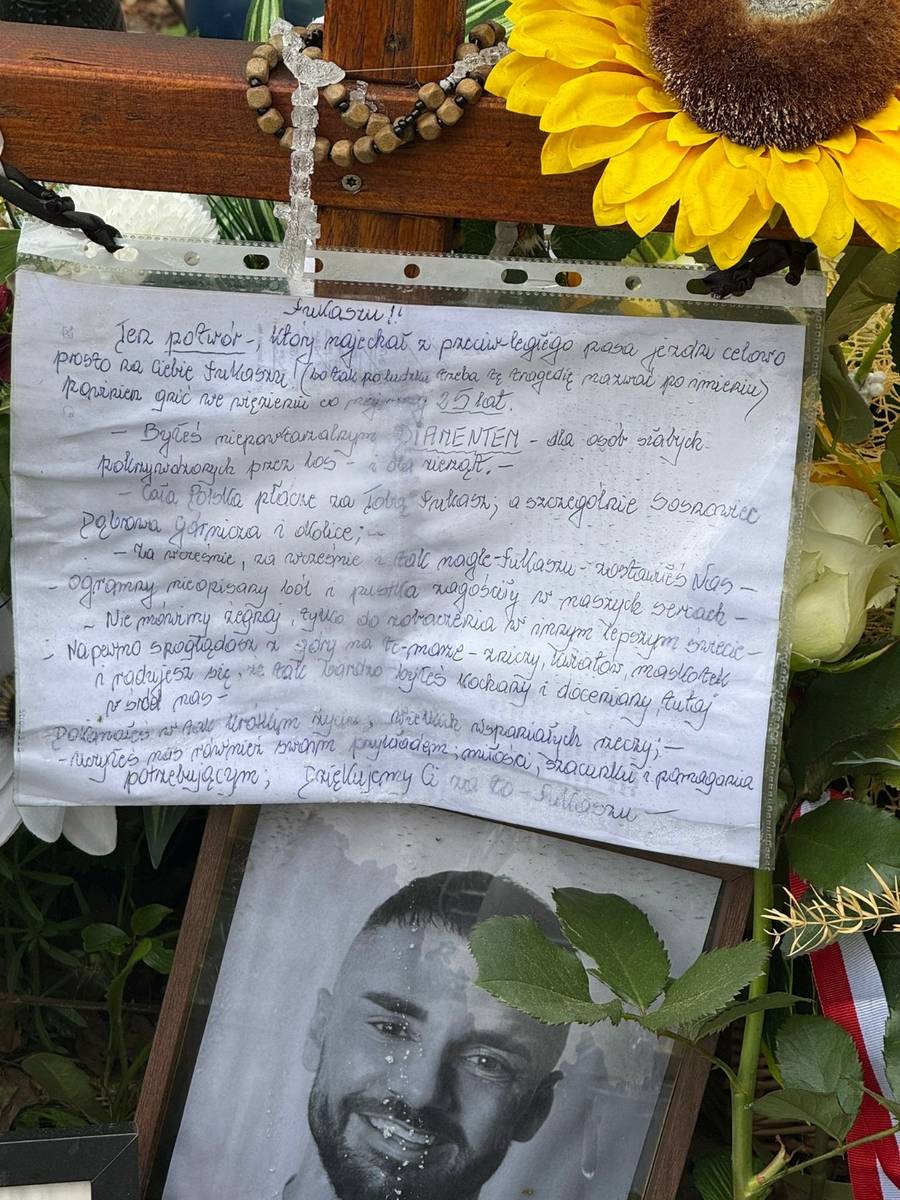 Łukaszu!!
Ten potwór-, który najechał z przeciwległego pasa jezdni celowo
prosto na Ciebie Łukaszu! (bo tak po ludzku trzeba tę tragedię nazwać po imieniu)
powinien gnić we więzieniu co najmniej 25 lat.
- Byłeś niepowtarzalnym DIAMENTEM - dla osób słabych
pokrzywdzonych przez los - i dla zwierząt. -
- Cała Polska płacze za Tobą Łukasz; a szczególnie Sosnowiec
Dąbrowa Górnicza i okolice; -
- Za wcześnie, za wcześnie i tak nagle Łukaszu - zostawiłeś Nas -
- ogromny nieopisany ból i pustka zagościły w naszych sercach -
- Nie mówimy żegnaj, tylko do zobaczenia w innym lepszym świecie -
- Napewno spoglądasz z góry na te - morze - zniczy, kwiatów, maskotek
i radujesz się, że tak bardzo byłeś kochany i doceniany tutaj
wśród nas -
Dokonałeś w tak krótkim życiu, wielkich wspaniałych rzeczy; -
- uczyłeś nas również swoim przykładem; miłości, szacunku i pomagania
potrzebującym; Dziękujemy Ci za to - Łukaszu -